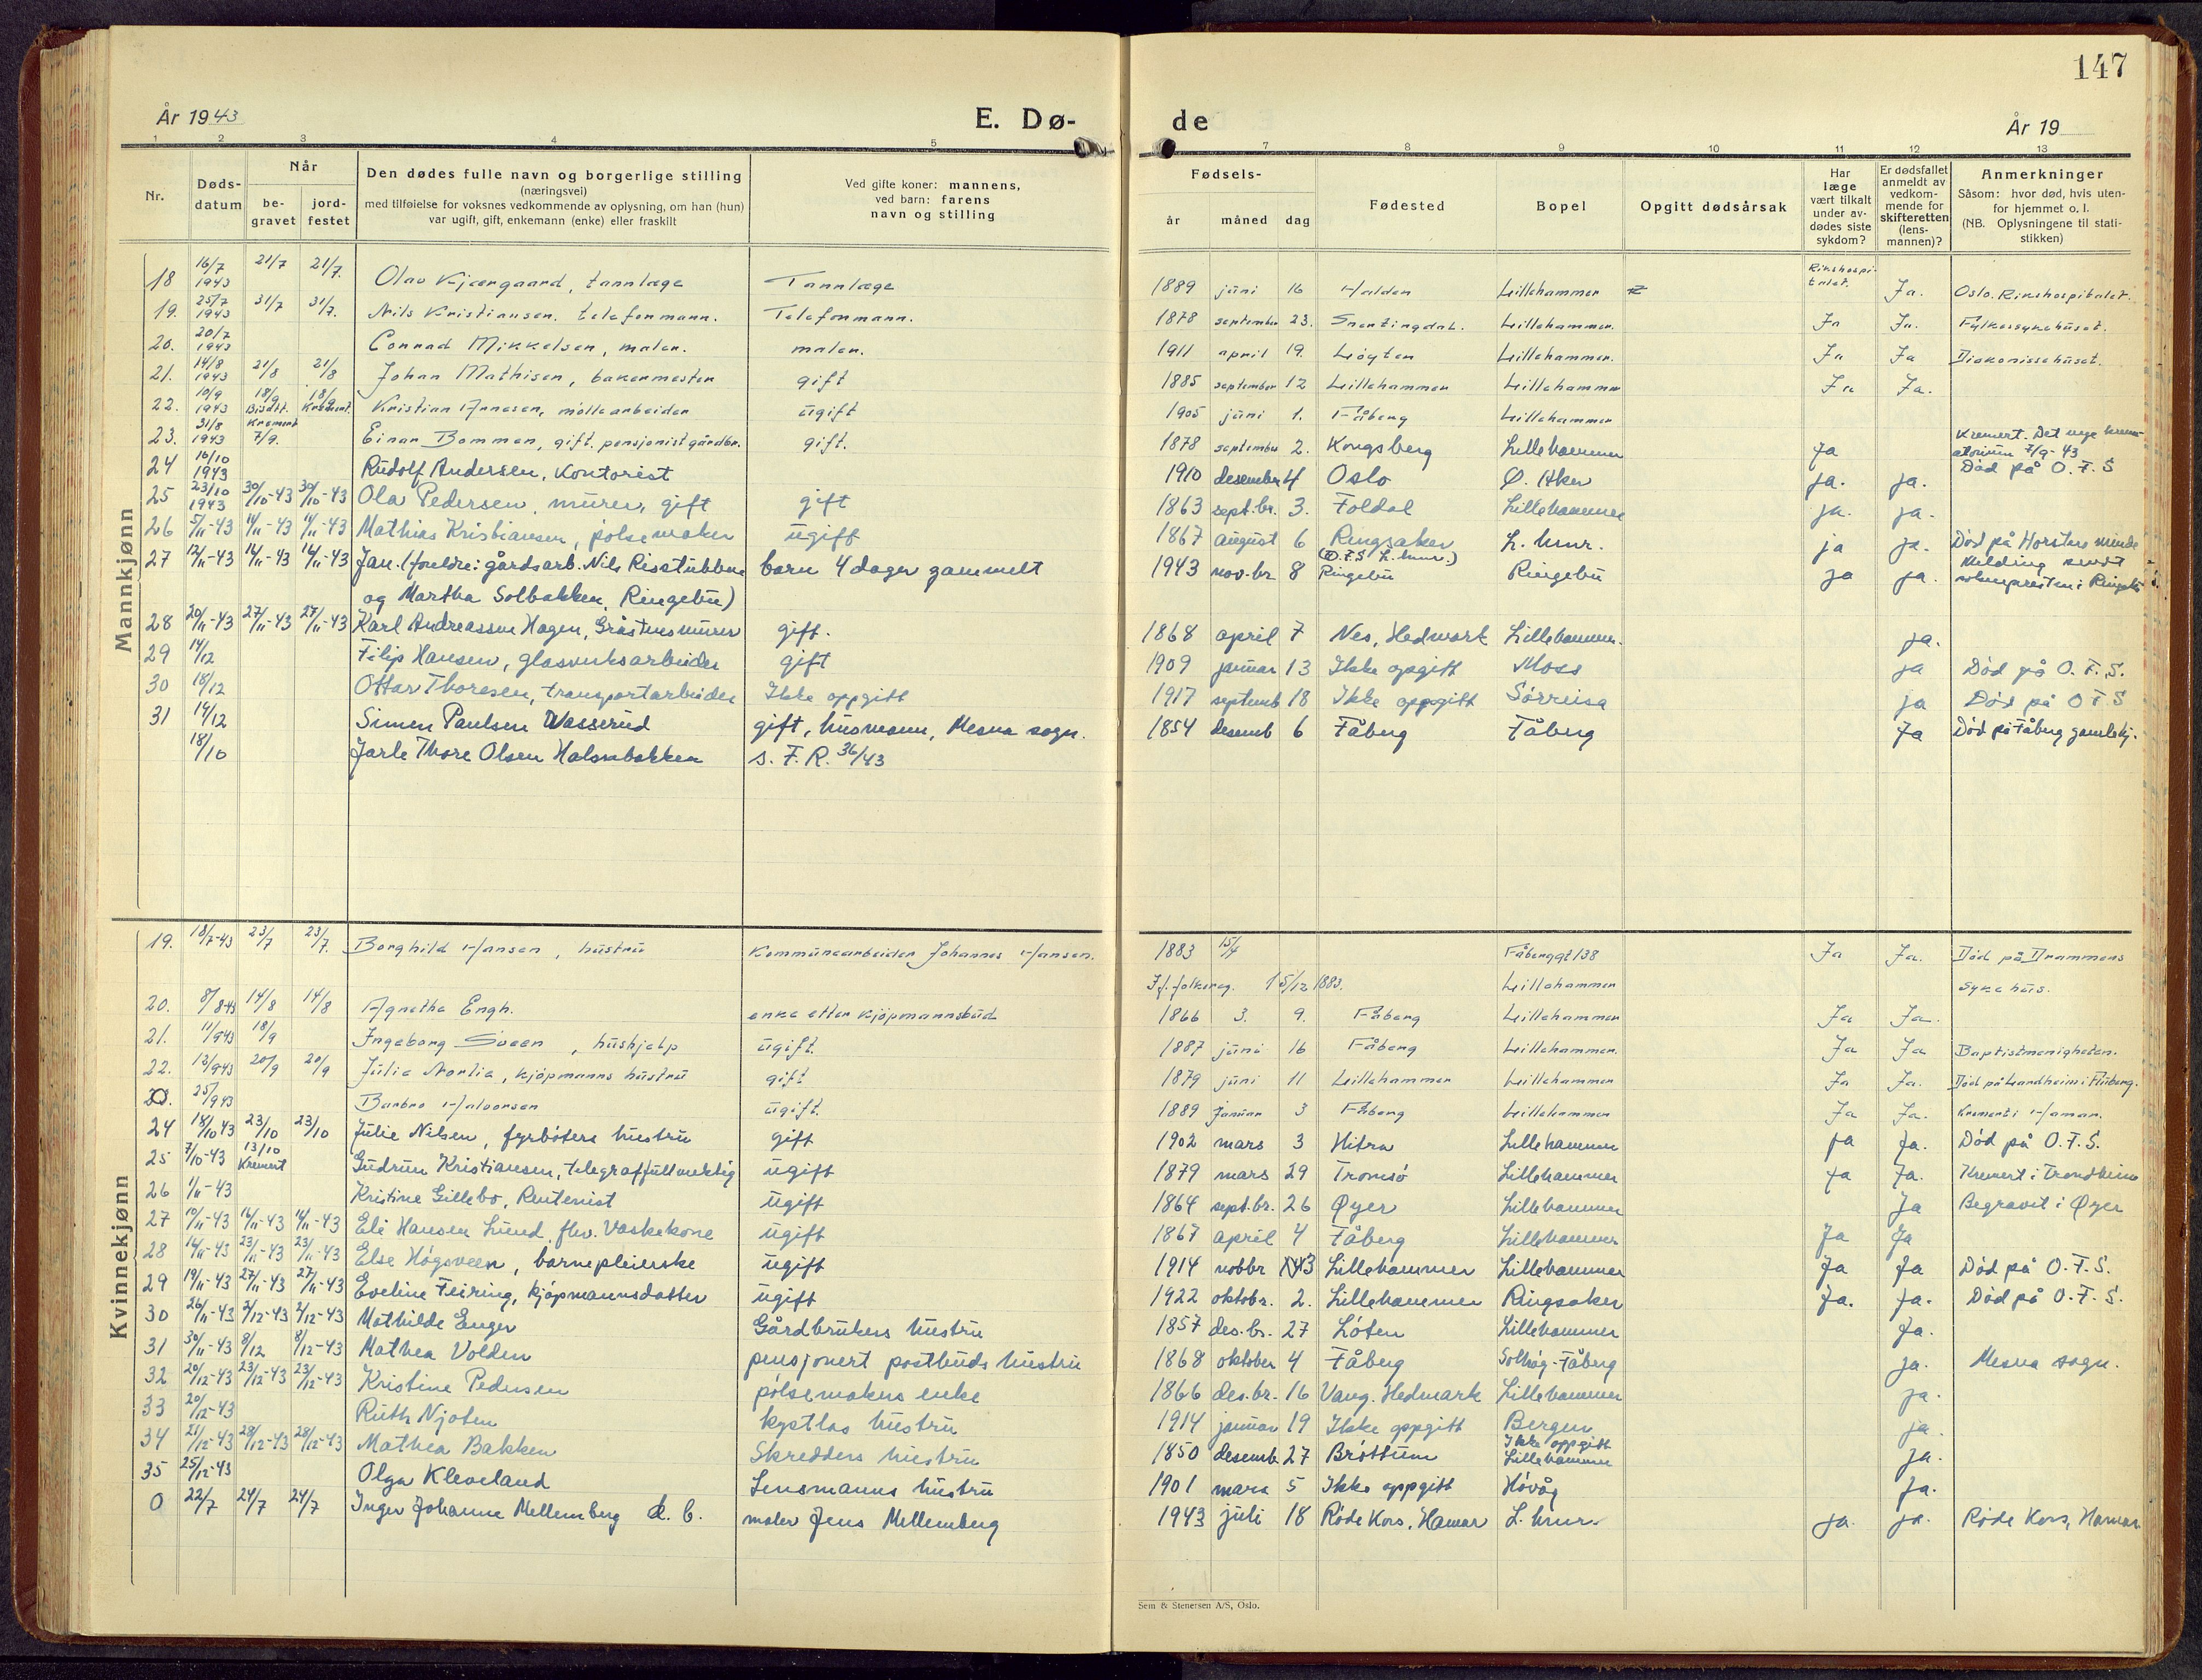 147
År 1943
E. Dø-
de
År 19
1 2 3 4 5
7 8 9 10 11 12 13
Nr.
Døds-
datum
Når
be-
gravet
jord-
festet
Den dødes fulle navn og borgerlige stilling
(næringsvei)
med tilføielse for voksnes vedkommende av oplysning, om han (hun)
var ugift, gift, enkemann (enke) eller fraskilt
Ved gifte koner: mannens,
ved barn: farens
navn og stilling
Fødsels-
år måned dag
Fødested
Bopel
Opgitt dødsårsak
Har
læge
vært tilkalt
under av-
dødes siste
sykdom?
Er dødsfallet
anmeldt av
vedkom-
mende for
skifteretten
(lens-
mannen)?
Anmerkninger
Såsom: hvor død, hvis uten-
for hjemmet o. l.
(NB. Oplysningene til stati-
stikken)
Mannkjønn
18 16/7 1943 21/7 21/7. Olav Kjærgaard, tannlæge Tannlæge 1889 juni 16 Halden Lillehammer Rikshospi-talet. Ja. Oslo. Rikshospitalet.
19. 25/7 1943 31/7 31/7. Nils Kristiansen. telefonmann. Telefonmann. 1878 september 23. Snertingdal. Lillehammer. Ja Ja. Fylkessykehuset.
20. 20/7 1943 Conrad Mikkelsen, maler. maler. 1911 april 19. Løyten Lillehammer. Ja Ja Diakonissehuset.
21. 14/8 1943 21/8 21/8 Johan Mathisen, bakermester gift 1885 september 12 Lillehammer Lillehammer Ja Ja.
22. 10/9 1943 18/9 Bisatt. 18/9 Kremert. Kristian Arnesen, møllearbeider ugift 1905 juni 1. Fåberg Lillehammer
23. 31/8 1943 Kremert 7/9. Einar Bommen, gift. pensjonist gårdbr. gift. 1878 september 2. Kongsberg Lillehammer Ja Kremert. Det nye krem-
atorium 7/9-43
24 16/10 1943 Rudolf Andersen, Kontorist 1910 desember 4 Oslo Ø. Aker ja. ja. Død på O.F.S
25 23/10 1943 30/10-43 30/10-43 Ola Pedersen, murer, gift gift 1863 sept.br. 3. Foldal Lillehammer ja. ja.
26 5/11-43 11/11-43 11/11-43 Mathias Kristiansen, pølsemaker ugift 1867 august 6 Ringsaker L. hmr. ja ja. Død på Horsters minde
27 12/11-43 16/11-43 16/11-43 Jan. (foreldre: gårdsarb. Nils Risstubben barn 4 dager gammelt 1943 nov.br 8 (O.F.S L. hmr.) Ringebu Ringebu ja ja. Melding sendt
og Martha Solbakken, Ringebu) soknepresten i Ringebu
28 20/11-43 27/11-43 27/11-43 Karl Andreassen Hagen, Gråstensmurer gift. 1868 april 7 Nes, Hedmark Lillehammer. ja.
29 14/12 Filip Hansen, glasverksarbeider gift 1909 januar 13 Ikke opgitt Moss ja Død på O.F.S.
30 18/12 Ottar Thoresen, transportarbeider Ikke oppgitt 1917 septemb 18 Ikke oppgitt Sørreisa ja Død på O F S
31 14/12 Simen Paulsen Wasserud gift, husmann, Mesna sogn. 1854 desemb 6 Fåberg Fåberg Ja Død på Fåberg gamlehj.
18/10 Jarle Thore Olsen Halsnbakken s. F. R. 36/43
Kvinnekjønn
19. 18/7-43 23/7 23/7. Borghild Hansen, hustru Kommunearbeider Johannes Hansen. 1883 15/7 Fåberggt 138 Ja Ja. Død på Drammens
If. folkereg. 15/12 1883. Lillehammer Sykehus.
20. 8/8-43 14/8 14/8 Agnethe Engh. enke etter kjøpmannsbud 1866 3. 9. Fåberg Lillehammer Ja Ja.
21. 11/9 43 18/9 Ingeborg Sveen, hushjelp ugift. 1887 juni 16 Fåberg Lillehammer. Ja Ja Baptistmenigheten.
22. 13/9 43 20/9 20/9 Julie Nordlie, kjøpmanns hustru gift 1879 juni 11 Lillehammer Lillehammer Ja Ja. Død på Landheim i Fåberg.
23. 25/9 43 Barbro Halvorsen ugift. 1889 Januar 3 Fåberg Lillehammer Ja Ja. Kremert i Hamar.
24 18/10 43 23/10 23/10 Julie Nilsen, fyrbøters hustru gift 1902 mars 3 Hitra Lillehammer ja Ja. Død på O.F.S.
25 7/10-43 13/10 Kremert Gudrun Kristiansen, telegraffullmektig ugift 1879 mars 29 Tromsø Lillehammer Ja Ja. Kremert i Trondheim
26 1/11-43 Kristine Gillebo, Rentenist ugift 1864 sept.br. 26 Øyer Lillehammer Ja Begravet i Øyer
27 10/11-43 16/11-43 16/11-43 Eli Hansen Lund, fhv. Vaskekone ugift 1867 april 4 Fåberg Lillehammer Ja Ja
28 14/11-43 23/11-43 23/11-43 Else Høgsveen, barnepleierske ugift 1914 nobbr 13 Lillehammer Lillehammer Ja Ja Død på O.F.S.
29 19/11-43 27/11-43 27/11-43 Eveline Feiring, kjøpmannsdatter ugift 1922 oktobr. 2. Lillehammer Ringsaker Ja. Ja. Død på O.F.S.
30 26/11-43 2/12-43 2/12-43 Mathilde Enger Gårdbrukers hustru 1857 des.br. 27 Løten Lillehammer Ja.
31 30/11-43 8/12 8/12-43 Mathea Volden pensjonert postbuds hustru 1868 oktober 4 Fåberg Solhøg-Fåberg ja. Mesna sogn.
32 20/12-43 23/12-43 23/12-43 Kristine Pedersen pølsemakers enke 1866 des.br. 16 Vang. Hedmark Lillehammer ja.
33 20/12-43 Ruth Njøten hustru 1914 januar 19 Ikke oppgitt Bergen ja.
Ikke oppgitt
34 21/12-43 28/12-43 28/12-43 Mathea Bakken Skredders hustru 1850 desemb. 27 Brøttum Lillehammer Ja.
35 25/12-43 Olga Kleveland Lensmanns hustru 1901 mars 5 Ikke oppgitt Høvåg Ja.
0 22/7 24/7 24/7 Inger Johanne Mellemberg d. b. maler Jens Mellemberg 1943 juli 18 Røde Kors, Hamar L. hmr. ja. ja. Røde Kors, Hamar
Sem & Stenersen A/S, Oslo.